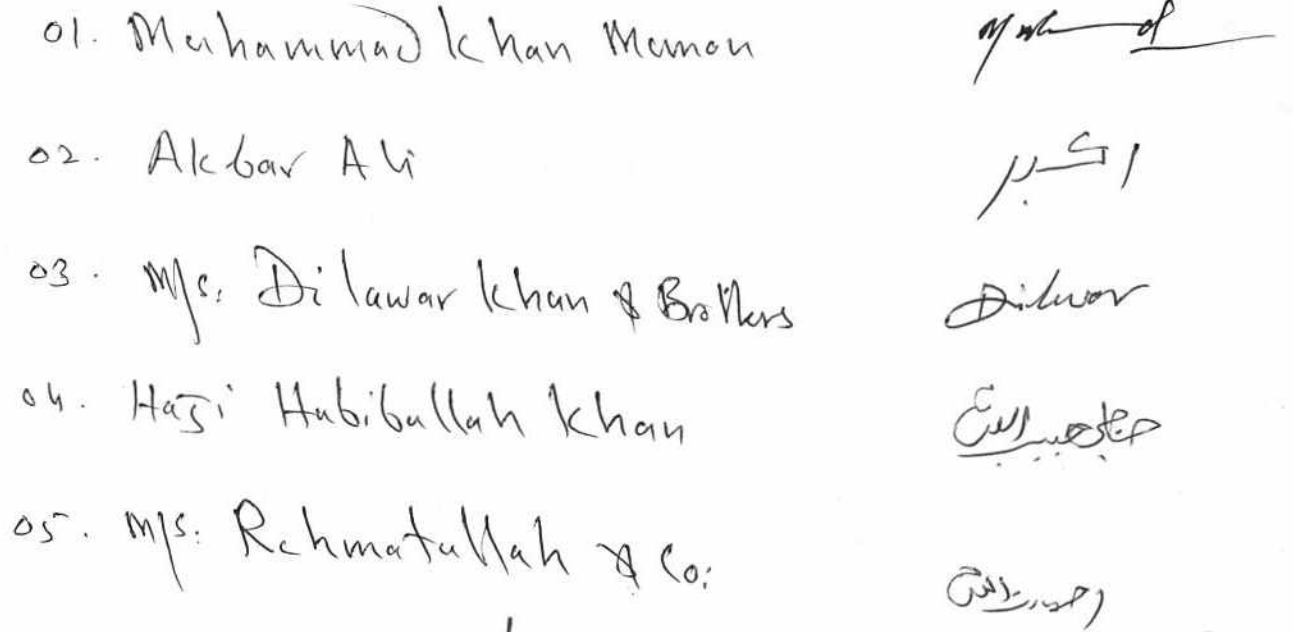 01. Muhammad Khan Memon
02. Akbar Ali اکبر
03. M/s. Dilawar Khan & Brothers Dilwar
04. Haji Habibullah Khan حاجی حبیب اللہ
05. M/s. Rehmatullah & Co: